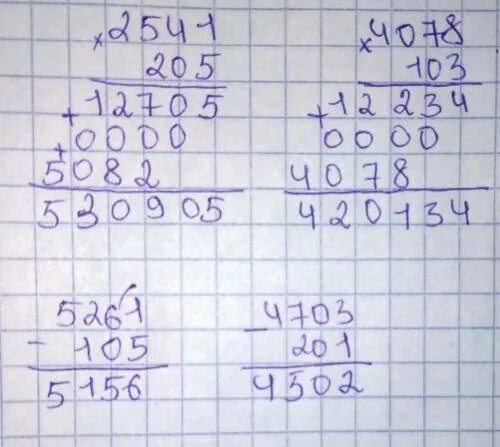 ×2541
205
+12705
+0000
5082
530905
×4078
103
+12234
0000
4078
420134
5261
- 105
5156
-4703
201
4502